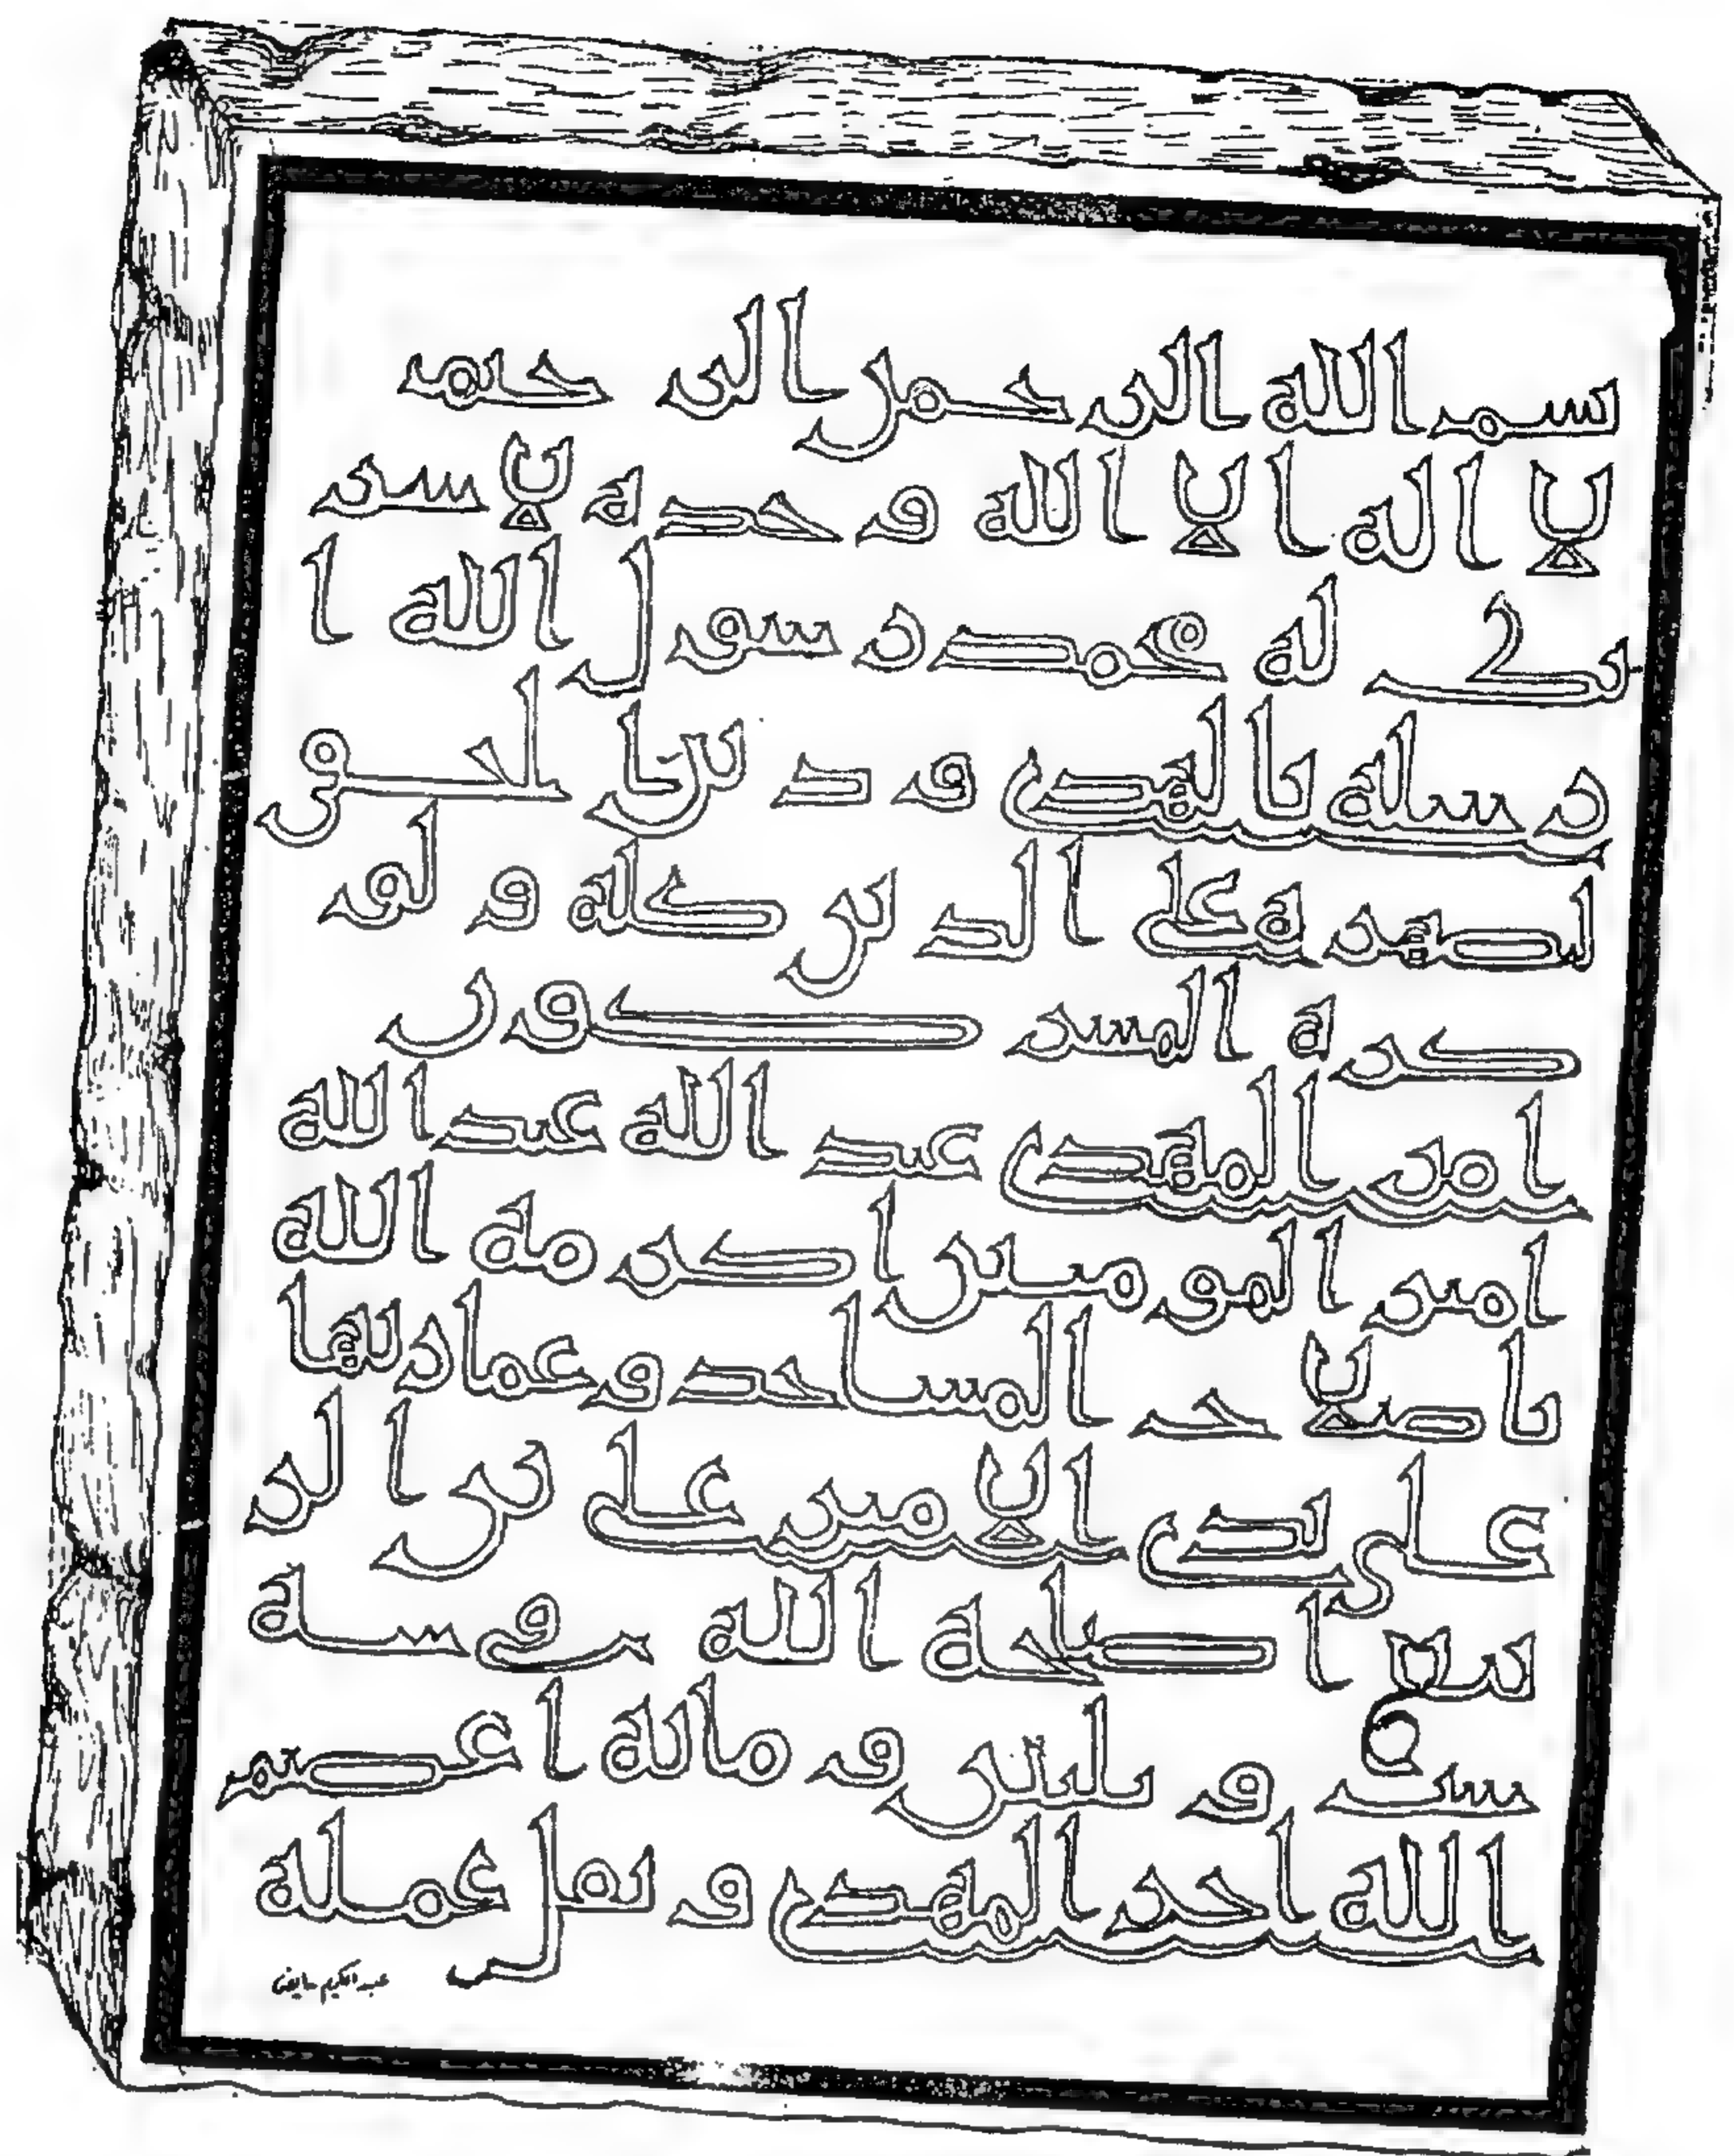 بسم الله الرحمن الرحيم
لا اله الا الله وحده لا شر
يك له محمد رسول الله ا
رسله بالهدى ودين الحق
ليظهره على الدين كله ولو
كره المشركون
امر المهدي عبد الله عبد الله
امير المومنين اكرمه الله
باصلاح المساجد وعمارتها
على يدي الامير على بن الر
بيع اصلحه الله في سنة
ست وثلثين ومائة اعظم
الله اجر المهدي وتقبل عمله
عبد الكريم